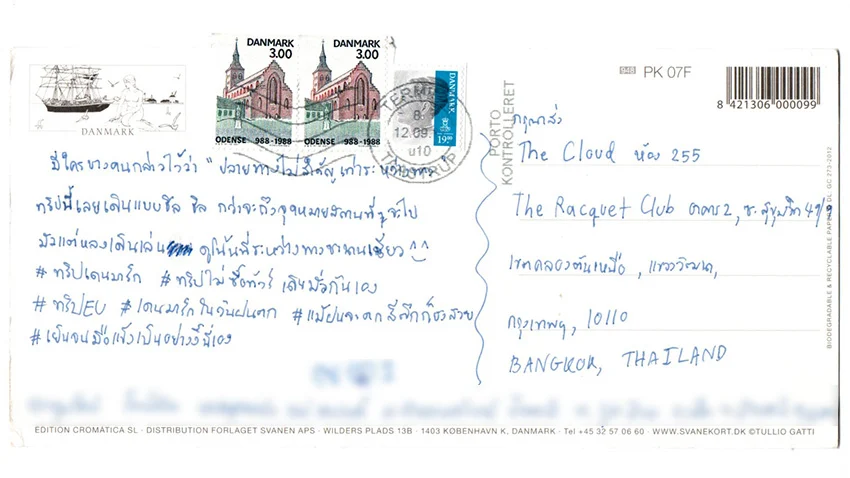 DANMARK
3.00
DANMARK
3.00
ODENSE 988-1988
ODENSE 988-1988
DANMARK
19.00
12.09.
u10
TAASTRUP
PORTO
KONTROLLERET
948 PK 07F
8 421306 000099
DANMARK
มีใครบางคนกล่าวไว้ว่า "ปลายทางไม่สำคัญเท่าระหว่างทาง"
ทริปนี้เลยเดินแบบชิล ชิล กว่าจะถึงจุดหมายสถานที่จะไป
มัวแต่หลงเดินเล่น ดูโน้นนี่ระหว่างทางซะนานเชียว ^^
# ทริปเดนมาร์ก # ทริปไม่ซื้อทัวร์ เดินมั่วกันเอง
# ทริปEU # เดนมาร์กในวันฝนตก # แม้ฝนจะตก ตึกก็ยังสวย
# เย็นจนมือแข็งเป็นอย่างงี้นี่เอง
กรุณาส่ง
The Cloud ห้อง 255
The Racquet Club อาคาร2, ซ.สุขุมวิท 49/9
เขตคลองตันเหนือ, แขวงวัฒนา,
กรุงเทพฯ, 10110
BANGKOK, THAILAND
BIODEGRADABLE & RECYCLABLE PAPER
EDITION CROMATICA SL · DISTRIBUTION FORLAGET SVANEN APS · WILDERS PLADS 13B · 1403 KØBENHAVN K, DANMARK · Tel +45 32 57 06 60 · WWW.SVANEKORT.DK ©TULLIO GATTI